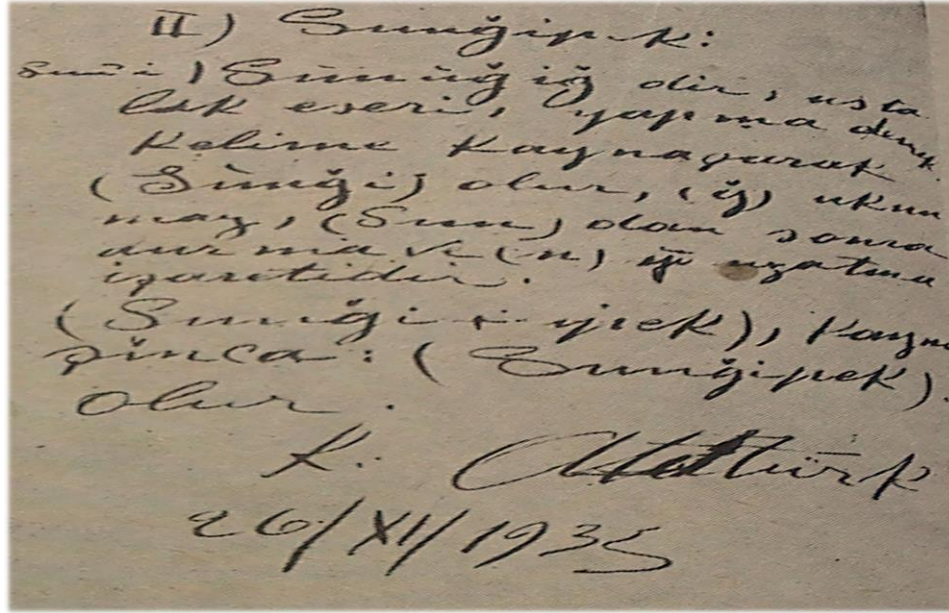 II) Sunğipek:
Sun'i) Sünüğiğ dir, usta
lık eseri, yapma demek.
Kelime Kaynaşarak
(Sunği) olur, (ğ) okun
maz, (Sun) dan sonra
durma ve (u) yu uzatma
işaretidir.
(Sunği + ipek), Kayna
şınca: (Sunğipek).
Olur.
K. Atatürk
26/XII/1935